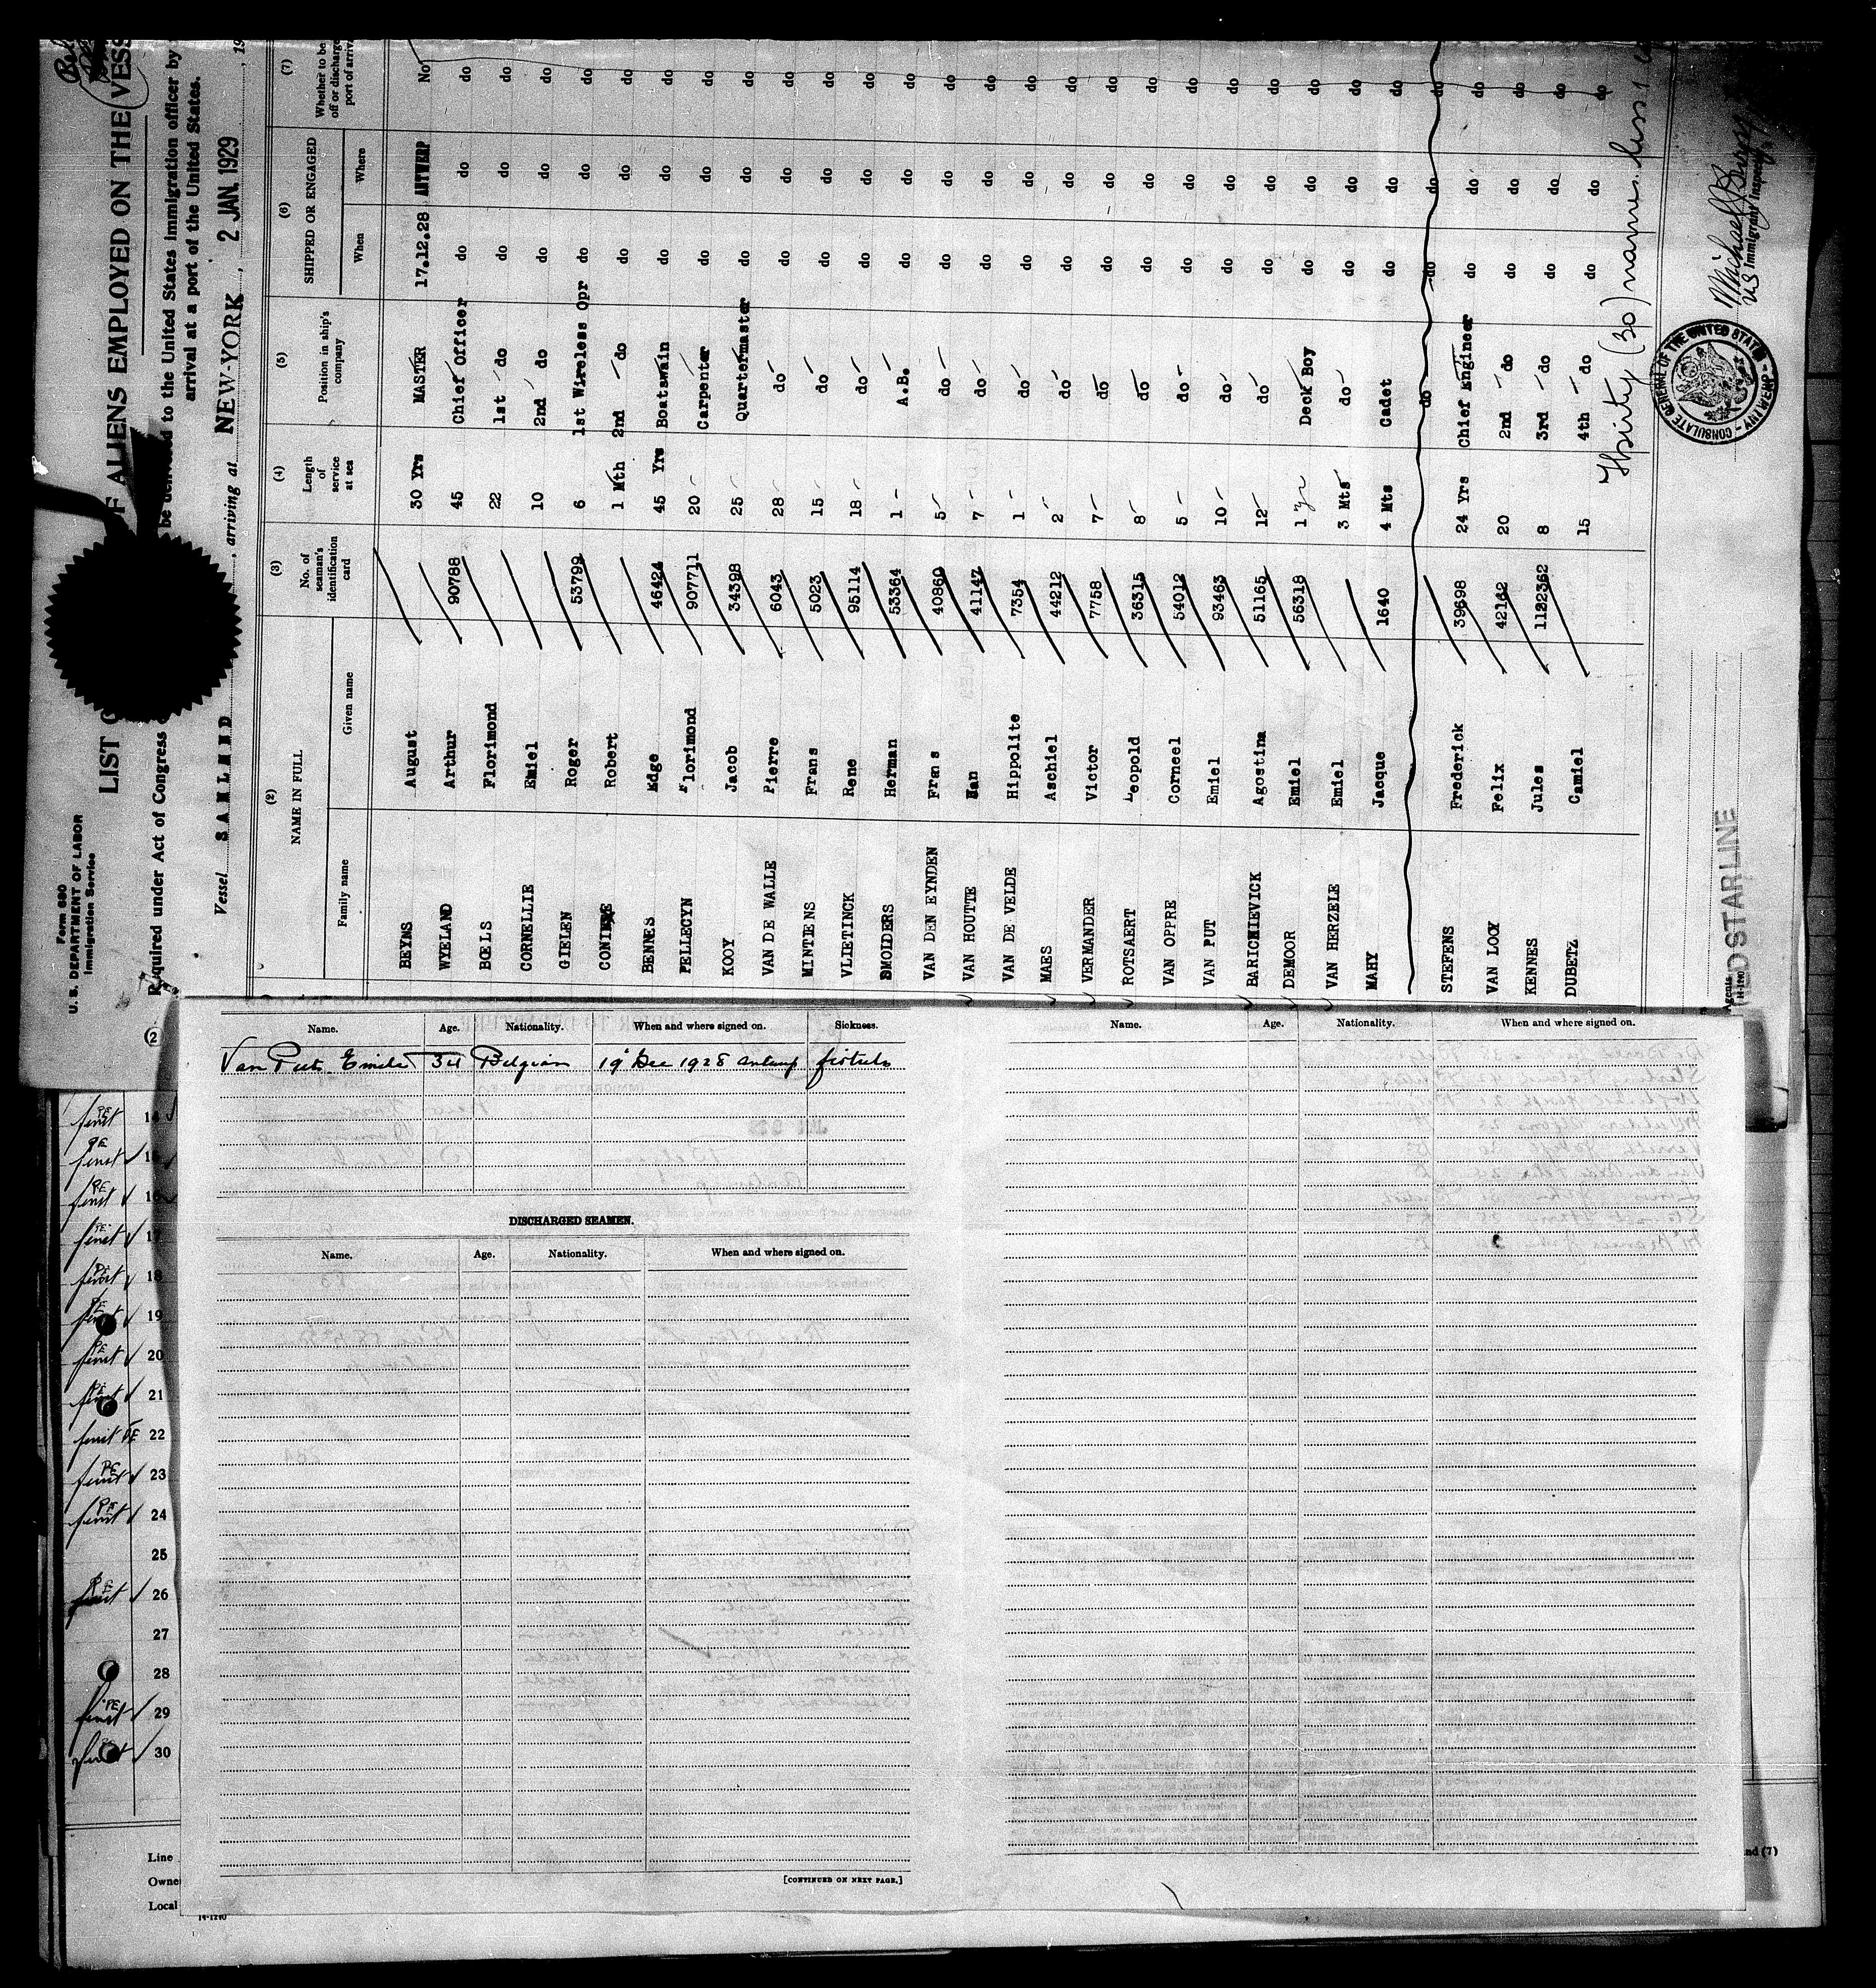 Form 680
U. S. DEPARTMENT OF LABOR
Immigration Service
LIST OF ALIENS EMPLOYED ON THE VESS
Required under Act of Congress be delivered to the United States immigration officer by
arrival at a port of the United States.
Vessel SAMLAND, arriving at NEW-YORK, 2 JAN. 1929, 19
(2) NAME IN FULL (3) No. of seaman's identification card (4) Length of service at sea (5) Position in ship's company (6) SHIPPED OR ENGAGED (7) Whether to be off or discharge port of arriv
Family name Given name When Where
BEYNS August 30 Yrs MASTER 17.12.28 ANTWERP No
WYELAND Arthur 90788 45 Chief Officer do do do
BOELS Florimond 22 1st do do do do
CORNELLIE Emiel 10 2nd do do do do
GIELEN Roger 53799 6 1st Wireless Opr do do do
Robert 1 Mth 2nd do do do do
BENNES Edge 46424 45 Yrs Boatswain do do do
PELLECYN Florimond 907711 20 Carpenter do do do
KOOY Jacob 34398 25 Quartermaster do do do
VAN DE WALLE Pierre 6043 28 do do do do
MINTIENS Frans 5023 15 do do do do
VLIETINCK Rene 95114 18 do do do do
SMOLDERS Herman 53364 1 A.B. do do do
VAN DEN EYNDEN Frans 40860 5 do do do do
VAN HOUTTE 41147 7 do do do do
VAN DE VELDE Hippolite 7354 1 do do do do
MAES Aschiel 44212 2 do do do do
VERMANDER Victor 7758 7 do do do do
ROTSAERT Leopold 36315 8 do do do do
VAN OPPRE Corneel 54012 5 do do do do
VAN PUT Emiel 93463 10 do do do do
BARICHIEVICK Agostina 51165 12 do do do do
DEMOOR Emiel 56318 1 yr Deck Boy do do do
VAN HERZELE Emiel 3 Mts do do do do
MAHY Jacque 1640 4 Mts Cadet do do do
do do do do
STEFFENS Frederick 39698 24 Yrs Chief Engineer do do do
VAN LOOY Felix 42142 20 2nd do do do do
KENNES Jules 1122362 8 3rd do do do do
DUBETZ Camiel 15 4th do do do do
Thirty (30) names less 1
CONSULATE GENERAL OF THE UNITED STATES - ANTWERP -
US Immigrant Inspector
Agents
STAR LINE
Name. Age. Nationality. When and where signed on. Sickness.
Van Put Emile 34 Belgian 19 Dec 1928 Antwerp fistula
DISCHARGED SEAMEN.
Name. Age. Nationality. When and where signed on.
[CONTINUED ON NEXT PAGE.]
Name. Age. Nationality. When and where signed on.
14
15
16
17
18
19
20
21
22
23
24
25
26
27
28
29
30
Line
Owne
Local
nd (7)